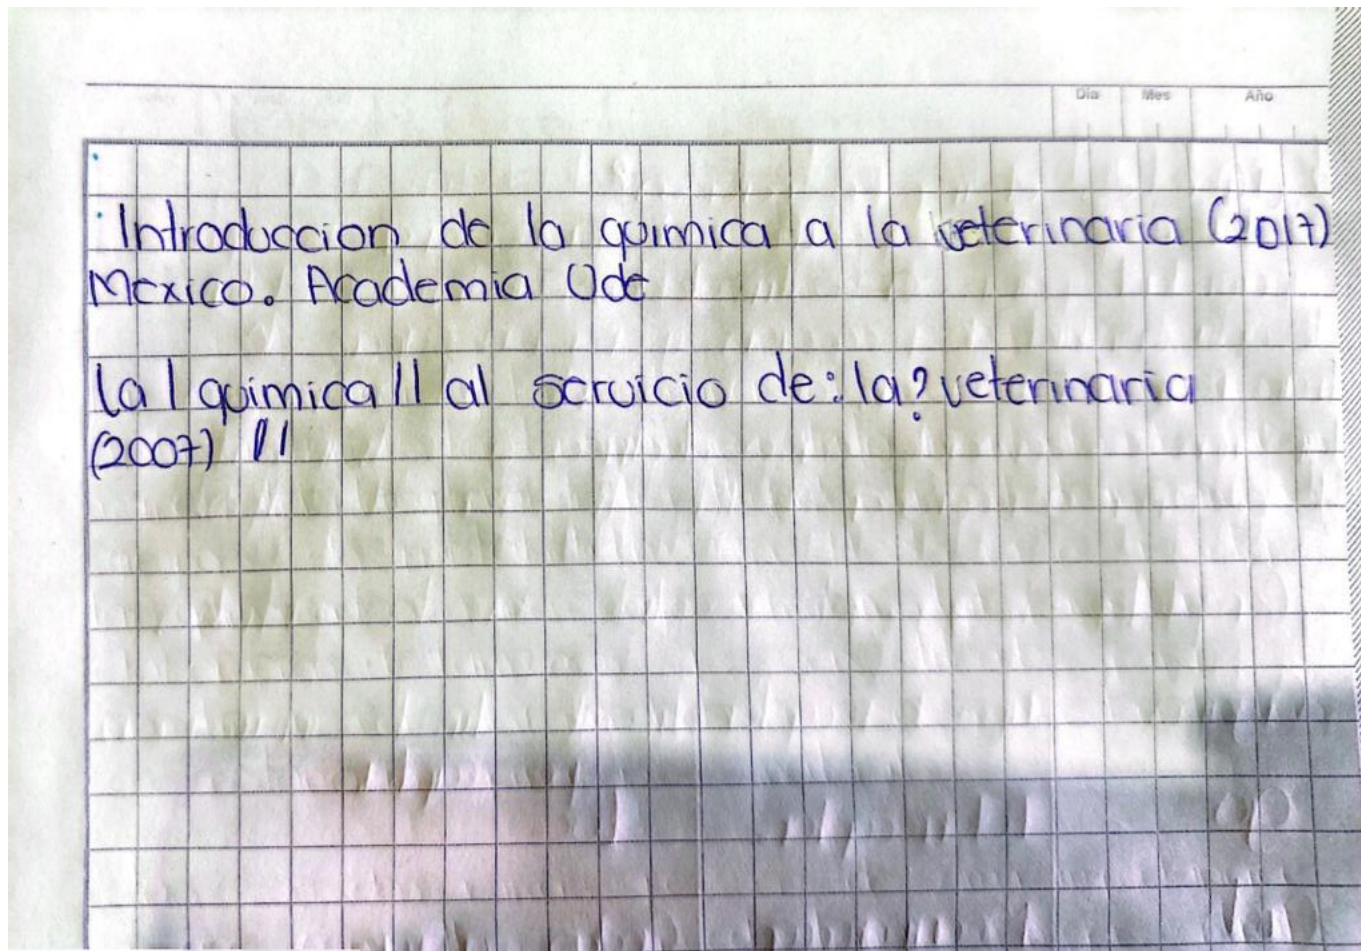 Dia Mes Año
·Introduccion de la quimica a la veterinaria (2017)
Mexico. Academia Ude
la | quimica || al servicio de: la? veterinaria
(2007) ||